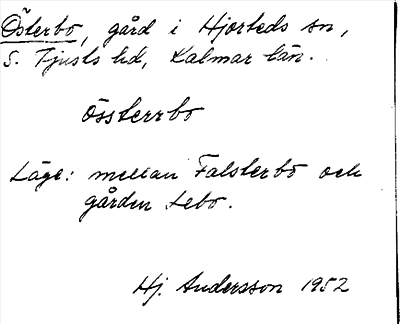 Österbo, gård i Hjorteds sn,
S. Tjusts hd, Kalmar län.
össterrbo
Läge: mellan Falsterbo och
gården Lebo.
Hj. Andersson 1952